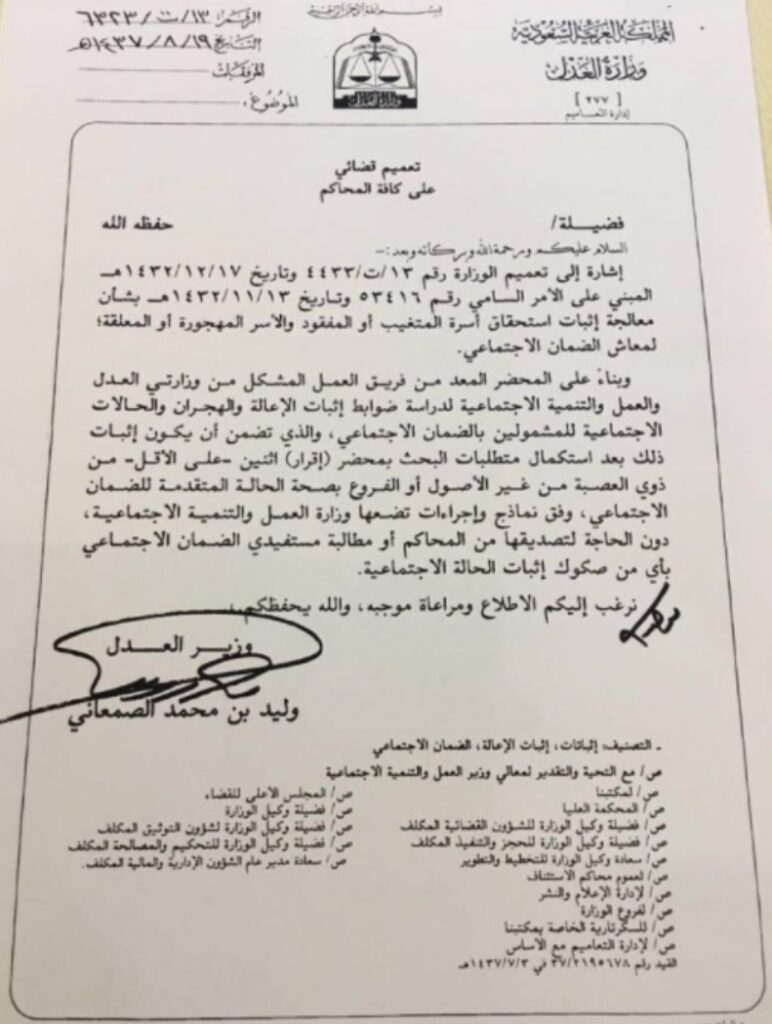 بسم الله الرحمن الرحيم
المملكة العربية السعودية
وزارة العدل
[ ٢٧٧ ]
إدارة التعاميم
وزارة العدل
الرقم: ١٣/ت/٦٣٢٣
التاريخ ١٤٣٧/٨/١٩هـ
المرفقات
الموضوع،
تعميم قضائي
على كافة المحاكم
فضيلة/ حفظه الله
السلام عليكم ورحمة الله وبركاته وبعد:-
إشارة إلى تعميم الوزارة رقم ١٣/ت/٤٤٣٣ وتاريخ ١٤٣٢/١٢/١٧هـ
المبني على الأمر السامي رقم ٥٣٤١٦ وتاريخ ١٤٣٢/١١/١٣هـ بشأن
معالجة إثبات استحقاق أسرة المتغيب أو المفقود والأسر المهجورة أو المعلقة؛
لمعاش الضمان الاجتماعي.
وبناءً على المحضر المعد من فريق العمل المشكل من وزارتي العدل
والعمل والتنمية الاجتماعية لدراسة ضوابط إثبات الإعالة والهجران والحالات
الاجتماعية للمشمولين بالضمان الاجتماعي، والذي تضمن أن يكون إثبات
ذلك بعد استكمال متطلبات البحث بمحضر (إقرار) اثنين -على الأقل- من
ذوي العصبة من غير الأصول أو الفروع بصحة الحالة المتقدمة للضمان
الاجتماعي، وفق نماذج وإجراءات تضعها وزارة العمل والتنمية الاجتماعية،
دون الحاجة لتصديقها من المحاكم أو مطالبة مستفيدي الضمان الاجتماعي
بأي من صكوك إثبات الحالة الاجتماعية.
نرغب إليكم الاطلاع ومراعاة موجبه، والله يحفظكم،،
وزير العدل
وليد بن محمد الصمعاني
ـ التصنيف: إثباتات، إثبات الإعالة، الضمان الاجتماعي
ص/ مع التحية والتقدير لمعالي وزير العمل والتنمية الاجتماعية
ص/ لمكتبنا
ص/ المحكمة العليا
ص/ فضيلة وكيل الوزارة للشؤون القضائية المكلف
ص/ فضيلة وكيل الوزارة للحجز والتنفيذ المكلف
ص/ سعادة وكيل الوزارة للتخطيط والتطوير
ص/ لعموم محاكم الاستئناف
ص/ لإدارة الإعلام والنشر
ص/ لفروع الوزارة
ص/ للسكرتارية الخاصة بمكتبنا
ص/ لإدارة التعاميم مع الأساس
القيد رقم ٣٧/٢١٩٥٦٧٨ في ١٤٣٧/٧/٣هـ
ص/ المجلس الأعلى للقضاء
ص/ فضيلة وكيل الوزارة
ص/ فضيلة وكيل الوزارة لشؤون التوثيق المكلف
ص/ فضيلة وكيل الوزارة للتحكيم والمصالحة المكلف
ص/ سعادة مدير عام الشؤون الإدارية والمالية المكلف.